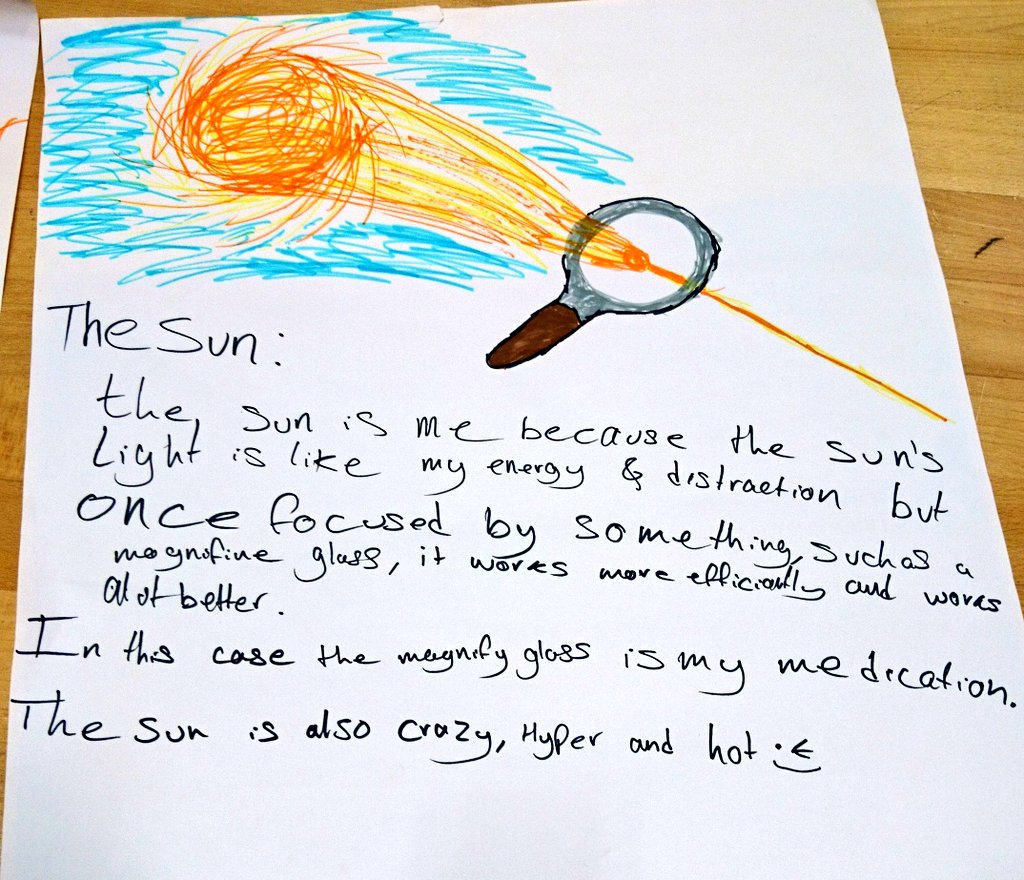 The Sun:
the sun is me because the sun's
Light is like my energy & distraction but
once focused by something, such as a
magnifine glass, it works more efficiantly and works
alot better.
In this case the magnify glass is my medication.
The sun is also crazy, Hyper and hot